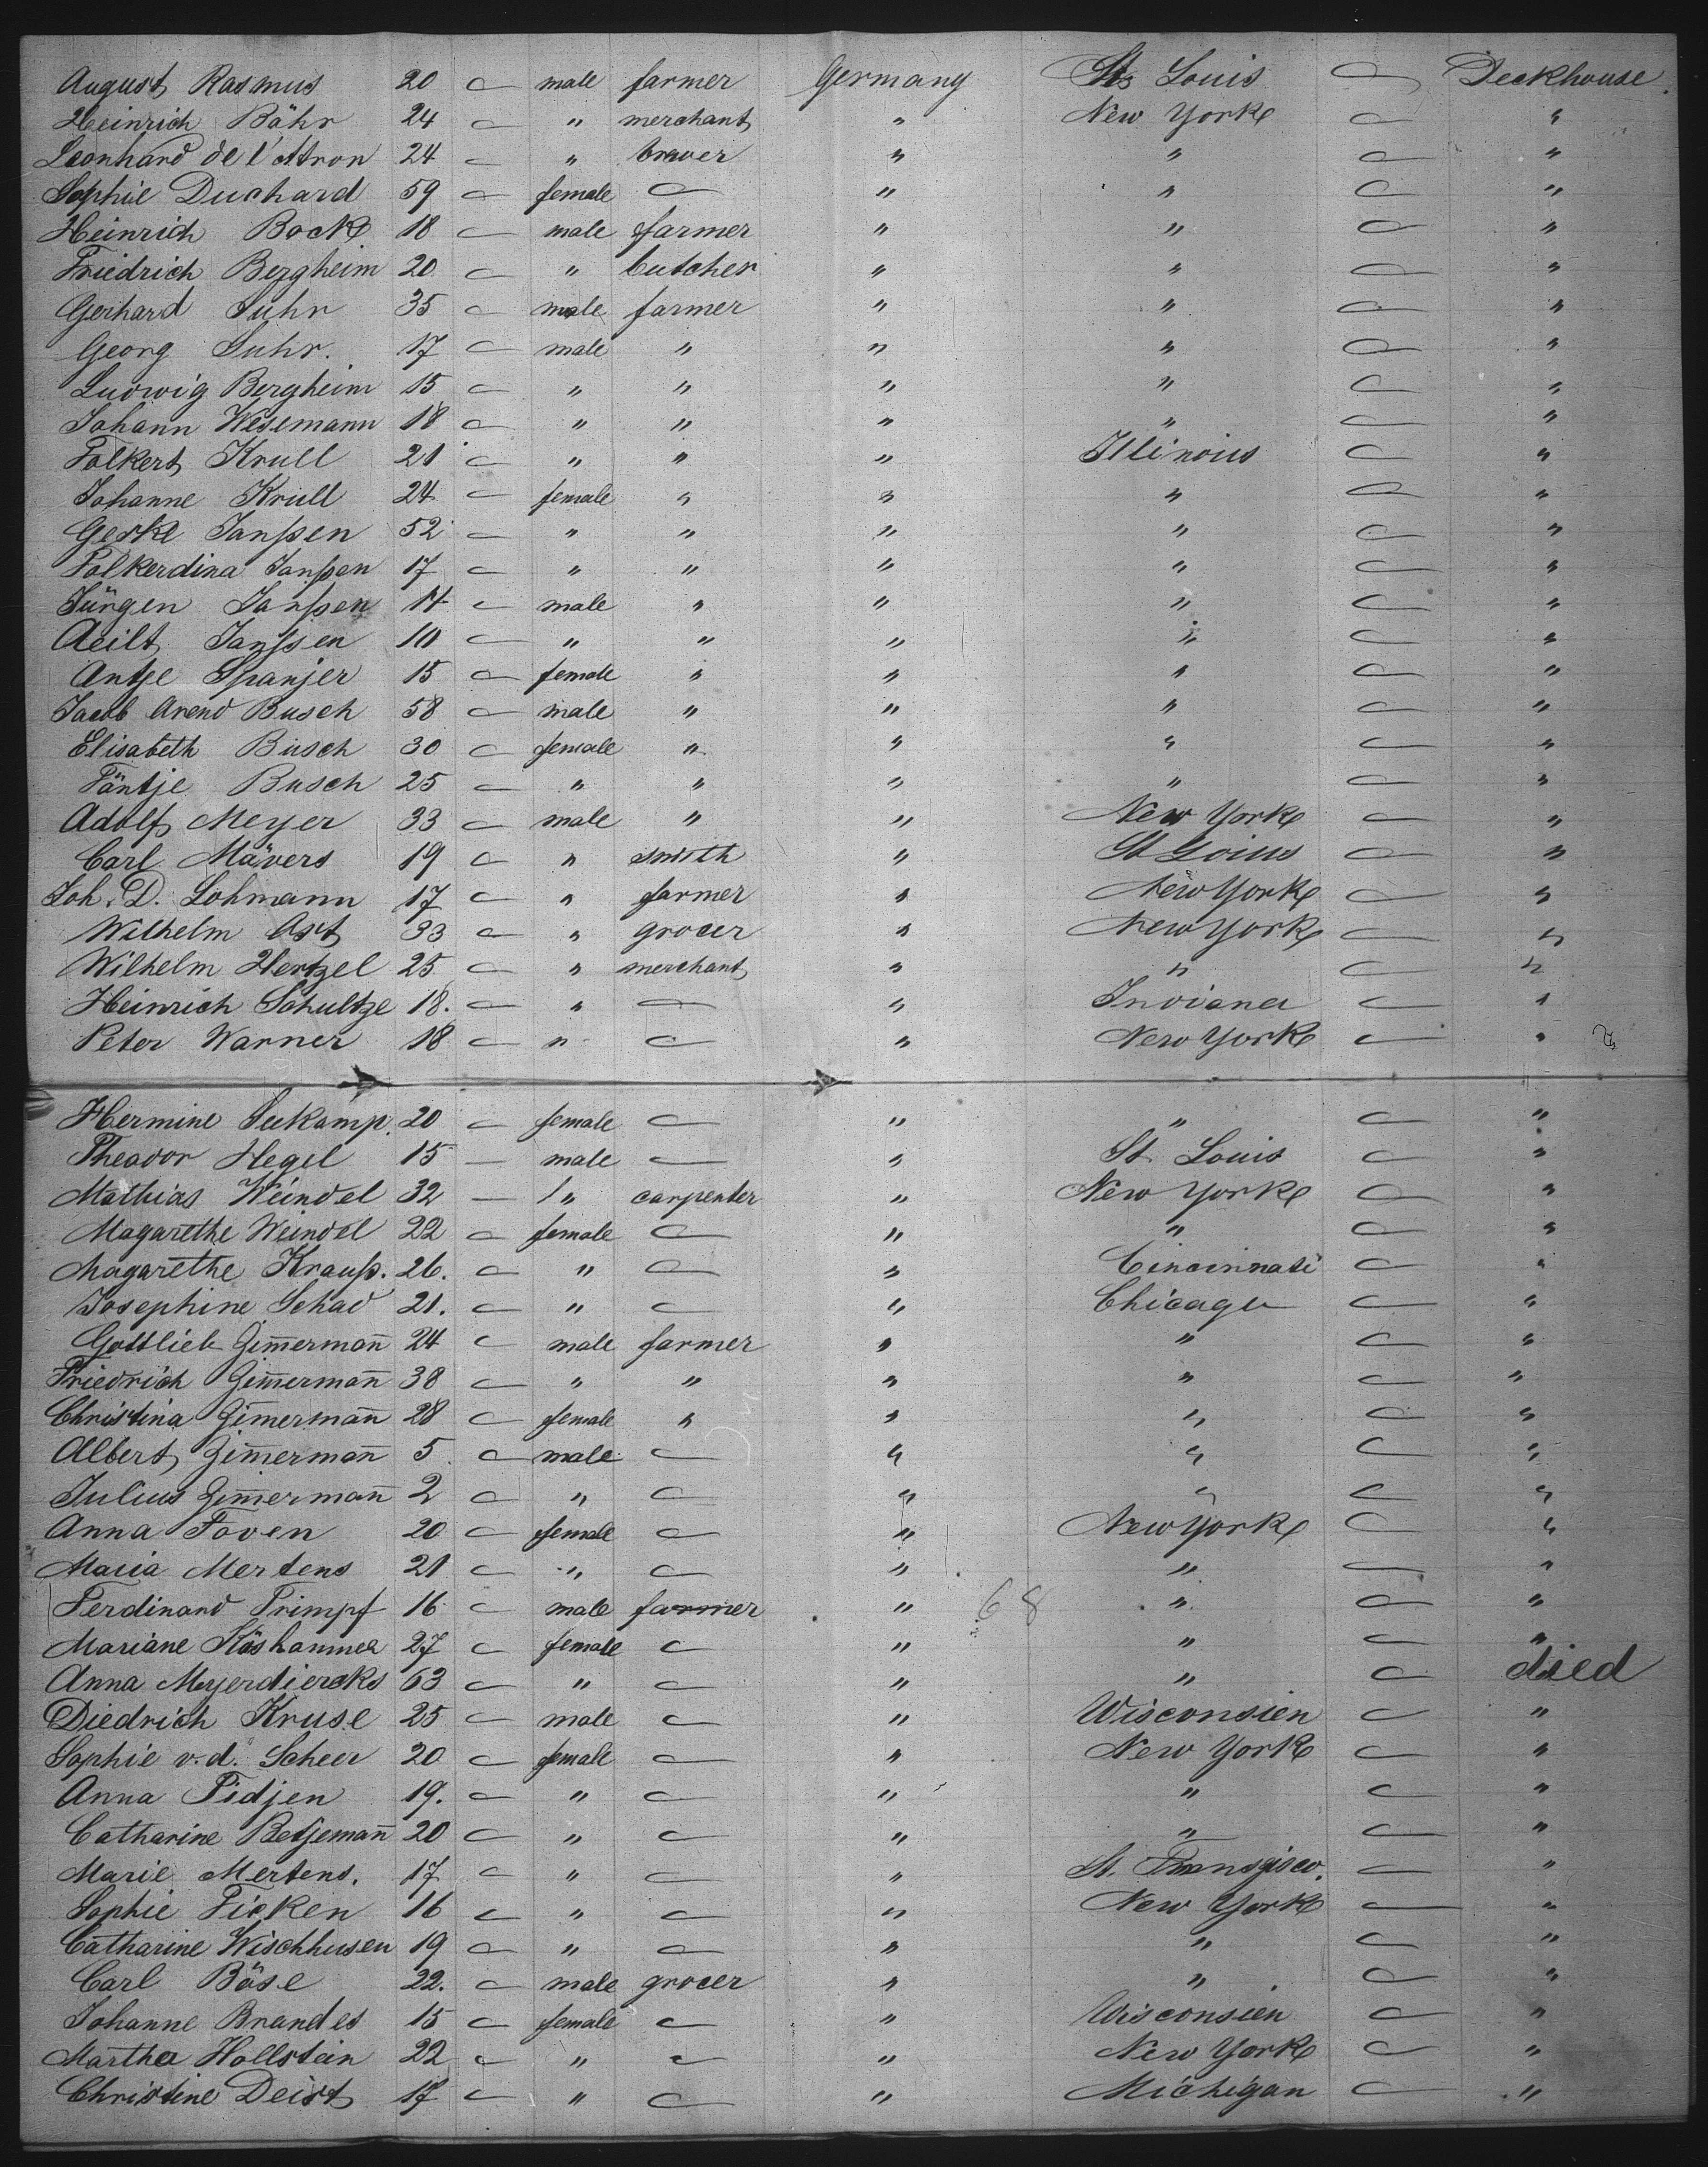 August Rasmus 20 — male farmer Germany St. Louis — Deckhouse.
Heinrich Bähr 24 — " merchant " New York — "
Leonhard de l'Attron 24 — " brewer " " — "
Sophie Duchard 59 — female — " " — "
Heinrich Bock 18 — male farmer " " — "
Friedrich Bergheim 20 — " butcher " " — "
Gerhard Suhr 35 — male farmer " " — "
Georg Suhr. 17 — male " " " — "
Ludwig Bergheim 15 — " " " " — "
Johann Wesemann 18 — " " " " — "
Folkert Krull 21 — " " " Illinois — "
Johanne Krull 24 — female " " " — "
Geske Janssen 52 — " " " " — "
Folkerdina Janssen 17 — " " " " — "
Jürgen Janssen 14 — male " " " — "
Aeilt Janssen 10 — " " " " — "
Antje Spanjer 15 — female " " " — "
Jacob Arend Busch 58 — male " " " — "
Elisabeth Busch 30 — female " " " — "
Fäntje Busch 25 — " " " " — "
Adolf Meyer 33 — male " " New York — "
Carl Mävers 19 — " smith " St Loius — "
Joh. D. Lohmann 17 — " farmer " New York — "
Wilhelm Ast 33 — " grocer " New York — "
Wilhelm Hertzel 25 — " merchant " " — "
Heinrich Schultze 18. — " — " Indiana — "
Peter Warner 18 — " — " New York — "
Hermine Seekamp. 20 — female — " " — "
Theador Hegel 15 — male — " St. Louis — "
Mathias Weindel 32 — " carpenter " New York — "
Magarethe Weindel 22 — female — " " — "
Magarethe Krauss. 26. — " — " Cincinnati — "
Josephine Schad 21. — " — " Chicago — "
Gottlieb Zim̄erman̄ 24 — male farmer " " — "
Friedrich Zim̄erman̄ 38 — " " " " — "
Christina Zim̄erman̄ 28 — female " " " — "
Albert Zim̄erman̄ 5 — male — " " — "
Julius Zim̄erman̄ 2 — " — " " — "
Anna Foven 20 — female — " New York — "
Maria Mertens 21 — " — " " — "
Ferdinand Trimpf 16 — male farmer " 68 " — "
Mariane Käshammer 27 — female — " " — "
Anna Meyerdiercks 63 — " — " " — died
Diedrich Kruse 25 — male — " Wisconsien — "
Sophie v.d. Scheer 20 — female — " New York — "
Anna Tidjen 19. — " — " " — "
Catharine Betjeman̄ 20 — " — " " — "
Marie Mertens. 17 — " — " St. Fransgisco. — "
Sophie Ficken 16 — " — " New York — "
Catharine Wischhusen 19 — " — " " — "
Carl Böse 22. — male grocer " " — "
Johanne Brandes 15 — female — " Wisconsien — "
Martha Hollstein 22 — " — " New York — "
Christine Deist 17 — " — " Michigan — "